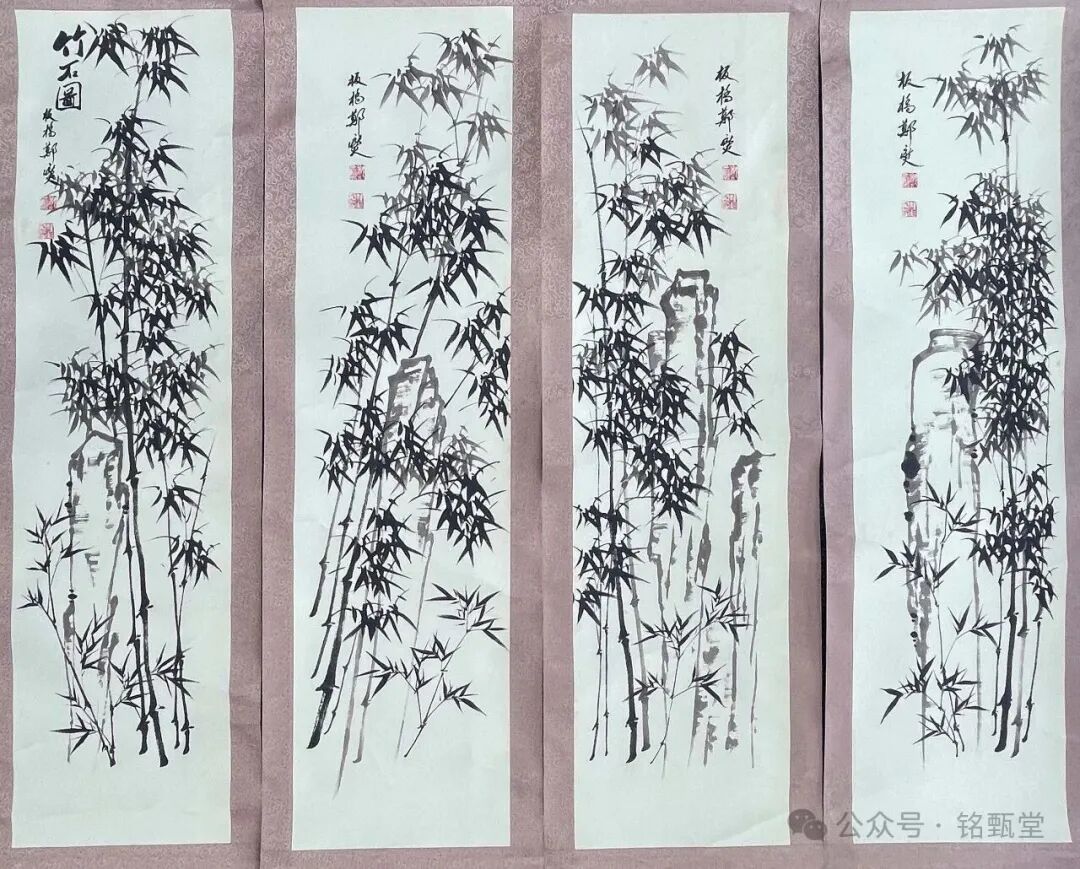 竹石图
板桥鄭燮
板桥鄭燮
板桥鄭燮
板桥鄭燮
公众号·铭甄堂